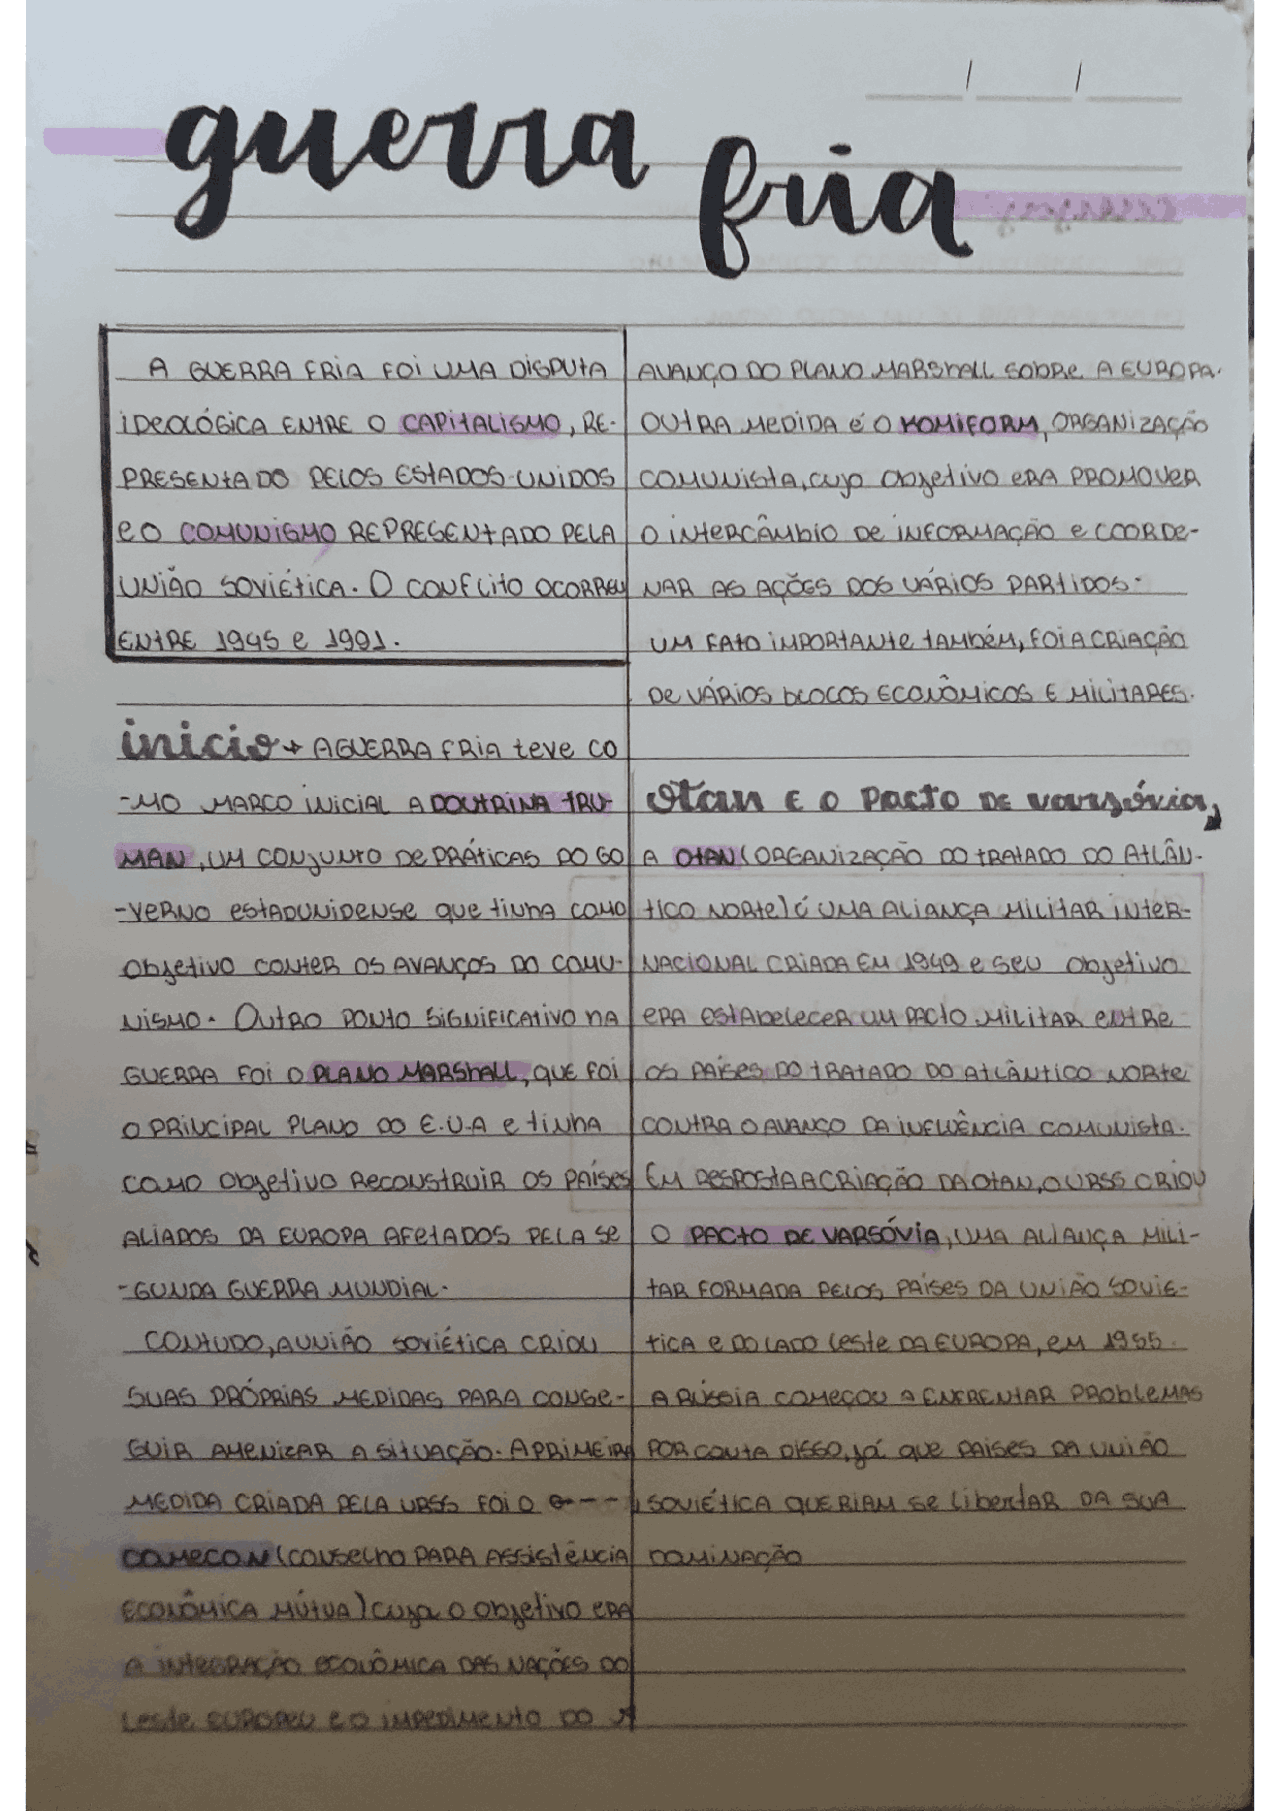 guerra fria
A GUERRA FRIA FOI UMA DISPUTA
IDEOLÓGICA ENTRE O CAPITALISMO, RE-
PRESENTADO PELOS ESTADOS-UNIDOS
E O COMUNISMO REPRESENTADO PELA
UNIÃO SOVIÉTICA. O CONFLITO OCORREU
ENTRE 1945 e 1991.
inicio → A GUERRA FRIA teve CO
-MO MARCO INICIAL A DOUTRINA TRU-
MAN, UM CONJUNTO DE PRÁTICAS DO GO
-VERNO ESTADUNIDENSE que tinha COMO
Objetivo CONTER OS AVANÇOS DO COMU-
NISMO. OUTRO PONTO SIGNIFICATIVO NA
GUERRA FOI O PLANO MARSHALL, QUE FOI
O PRINCIPAL PLANO DO E.U.A e tinha
COMO Objetivo RECONSTRUIR OS PAÍSES
ALIADOS DA EUROPA AFETADOS PELA SE
-GUNDA GUERRA MUNDIAL.
CONTUDO, A UNIÃO SOVIÉTICA CRIOU
SUAS PRÓPRIAS MEDIDAS PARA CONSE-
GUIR AMENIZAR A SITUAÇÃO. A PRIMEIRA
MEDIDA CRIADA PELA URSS FOI O
COMECON (CONSELHO PARA ASSISTÊNCIA
ECONÔMICA MÚTUA) cuja o objetivo ERA
A INTEGRAÇÃO ECONÔMICA DAS NAÇÕES DO
Leste EUROPEU E O IMPEDIMENTO DO
AVANÇO DO PLANO MARSHALL SOBRE A EUROPA.
OUTRA MEDIDA É O KOMIFORM, ORGANIZAÇÃO
COMUNISTA, cujo objetivo ERA PROMOVER
O INTERCÂMBIO DE INFORMAÇÃO e COORDE-
NAR AS AÇÕES DOS VÁRIOS PARTIDOS.
UM FATO IMPORTANTE TAMBÉM, FOI A CRIAÇÃO
DE VÁRIOS BLOCOS ECONÔMICOS E MILITARES.
Otan E O PACTO DE varsóvia
A OTAN (ORGANIZAÇÃO DO TRATADO DO ATLÂN-
TICO NORTE) é UMA ALIANÇA MILITAR INTER-
NACIONAL CRIADA EM 1949 e SEU Objetivo
ERA ESTABELECER UM PACTO MILITAR ENTRE
OS PAÍSES DO TRATADO DO ATLÂNTICO NORTE
CONTRA O AVANÇO DA INFLUÊNCIA COMUNISTA.
EM RESPOSTA A CRIAÇÃO DA OTAN, O URSS CRIOU
O PACTO DE VARSÓVIA, UMA ALIANÇA MILI-
TAR FORMADA PELOS PAÍSES DA UNIÃO SOVIE-
TICA E DO LADO LESTE DA EUROPA, EM 1955.
A RÚSSIA COMEÇOU A ENFRENTAR PROBLEMAS
POR CONTA DISSO, já que PAISES DA UNIÃO
SOVIÉTICA QUERIAM SE LIBERTAR DA SUA
DOMINAÇÃO